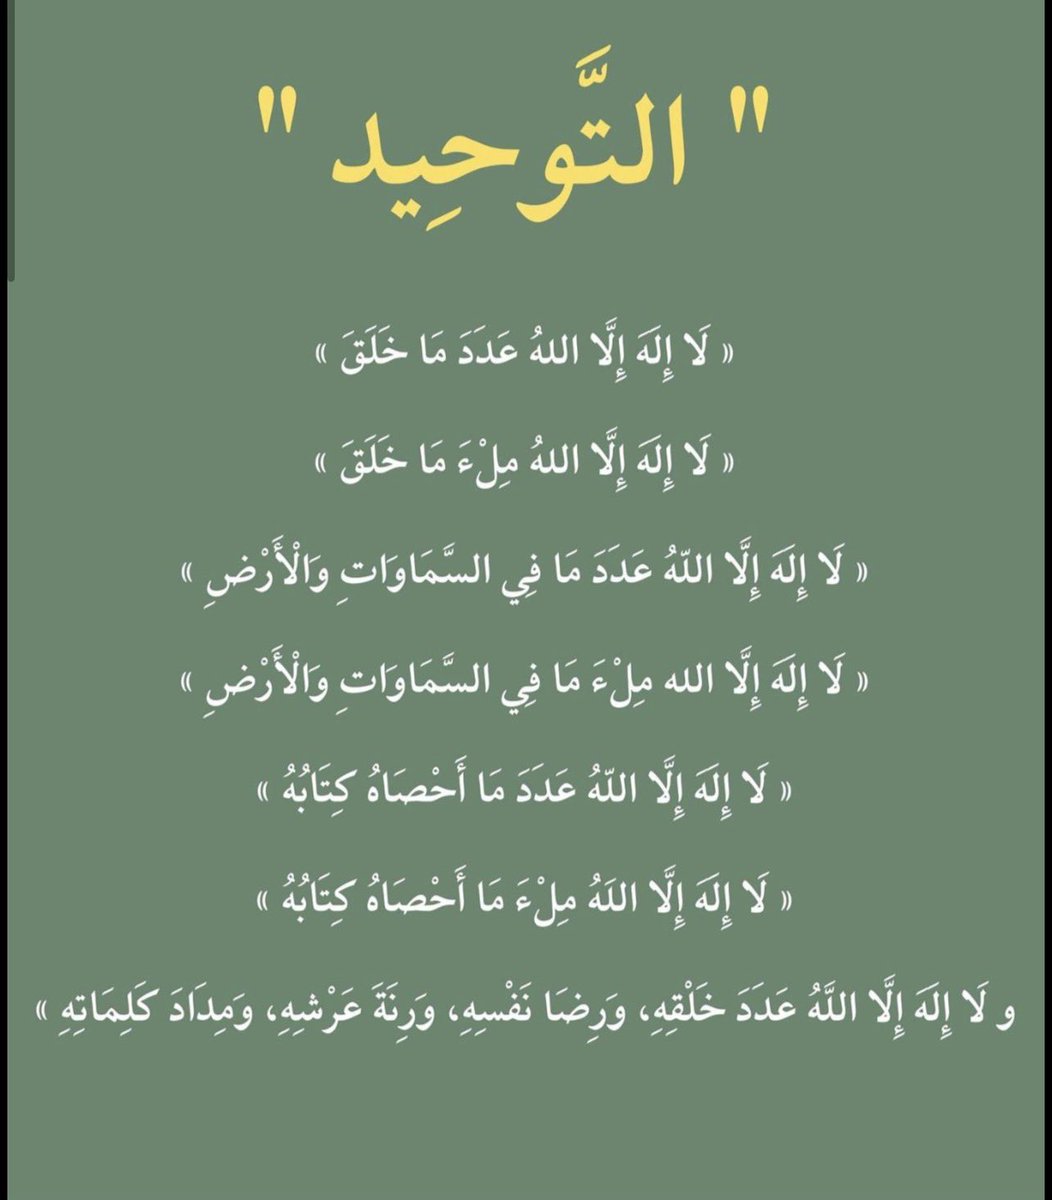 " التَّوحِيد "
« لَا إِلَهَ إِلَّا اللهُ عَدَدَ مَا خَلَقَ »
« لَا إِلَهَ إِلَّا اللهُ مِلْءَ مَا خَلَقَ »
« لَا إِلَهَ إِلَّا اللّهُ عَدَدَ مَا فِي السَّمَاوَاتِ وَالْأَرْضِ »
« لَا إِلَهَ إِلَّا الله مِلْءَ مَا فِي السَّمَاوَاتِ وَالْأَرْضِ »
« لَا إِلَهَ إِلَّا اللّهُ عَدَدَ مَا أَحْصَاهُ كِتَابُهُ »
« لَا إِلَهَ إِلَّا اللَهُ مِلْءَ مَا أَحْصَاهُ كِتَابُهُ »
و لَا إِلَهَ إِلَّا اللَّهُ عَدَدَ خَلْقِهِ، وَرِضَا نَفْسِهِ، وَرِنَةَ عَرْشِهِ، وَمِدَادَ كَلِمَاتِهِ »